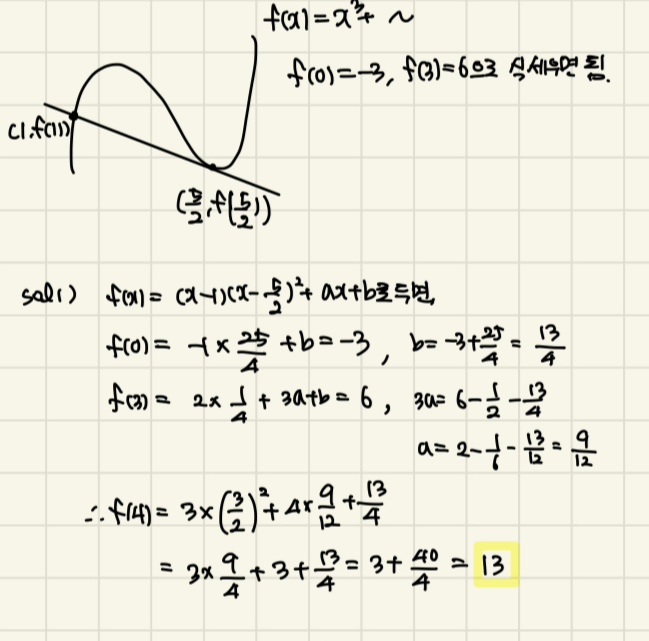 f(x) = x³ + ~
f(0) = -3, f(3) = 6으로 식세우면 됨.
(1, f(1))
(5/2, f(5/2))
sol1) f(x) = (x-1)(x-5/2)² + ax+b로 두면,
f(0) = -1 × 25/4 + b = -3 , b = -3 + 25/4 = 13/4
f(3) = 2 × 1/4 + 3a+b = 6 , 3a = 6 - 1/2 - 13/4
a = 2 - 1/6 - 13/12 = 9/12
∴ f(4) = 3 × (3/2)² + 4 × 9/12 + 13/4
= 3 × 9/4 + 3 + 13/4 = 3 + 40/4 = 13